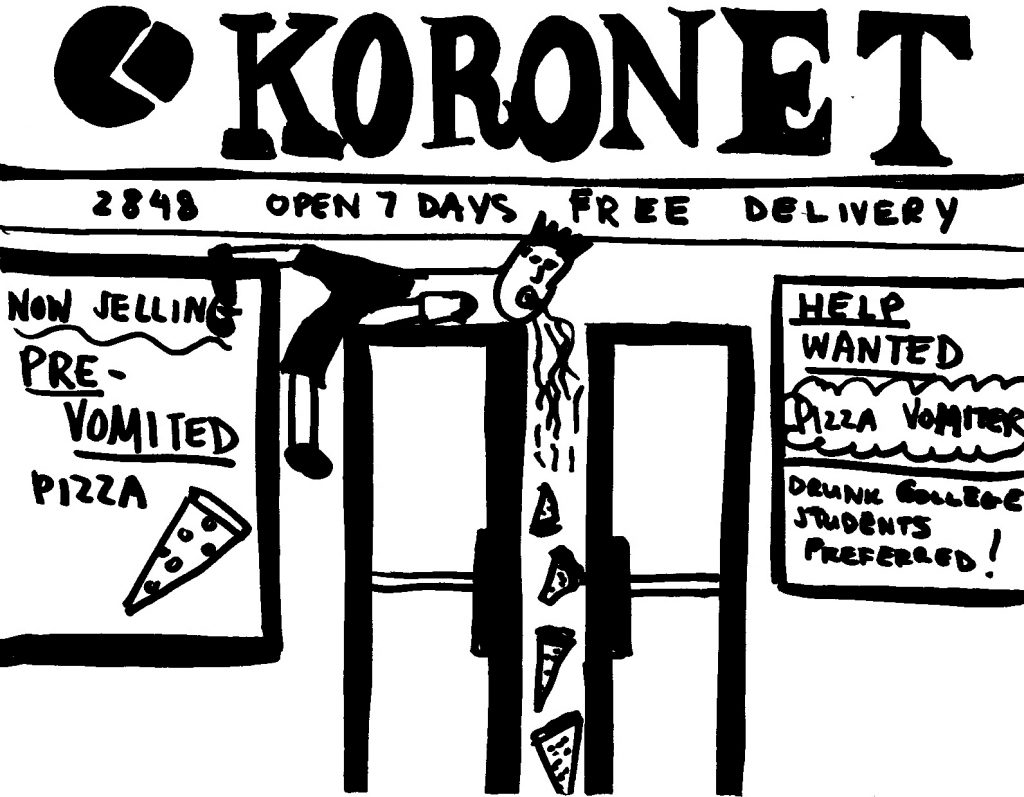 KORONET
2848 OPEN 7 DAYS FREE DELIVERY
NOW SELLING
PRE-
VOMITED
PIZZA
HELP
WANTED
PIZZA VOMITER
DRUNK COLLEGE
STUDENTS
PREFERRED!